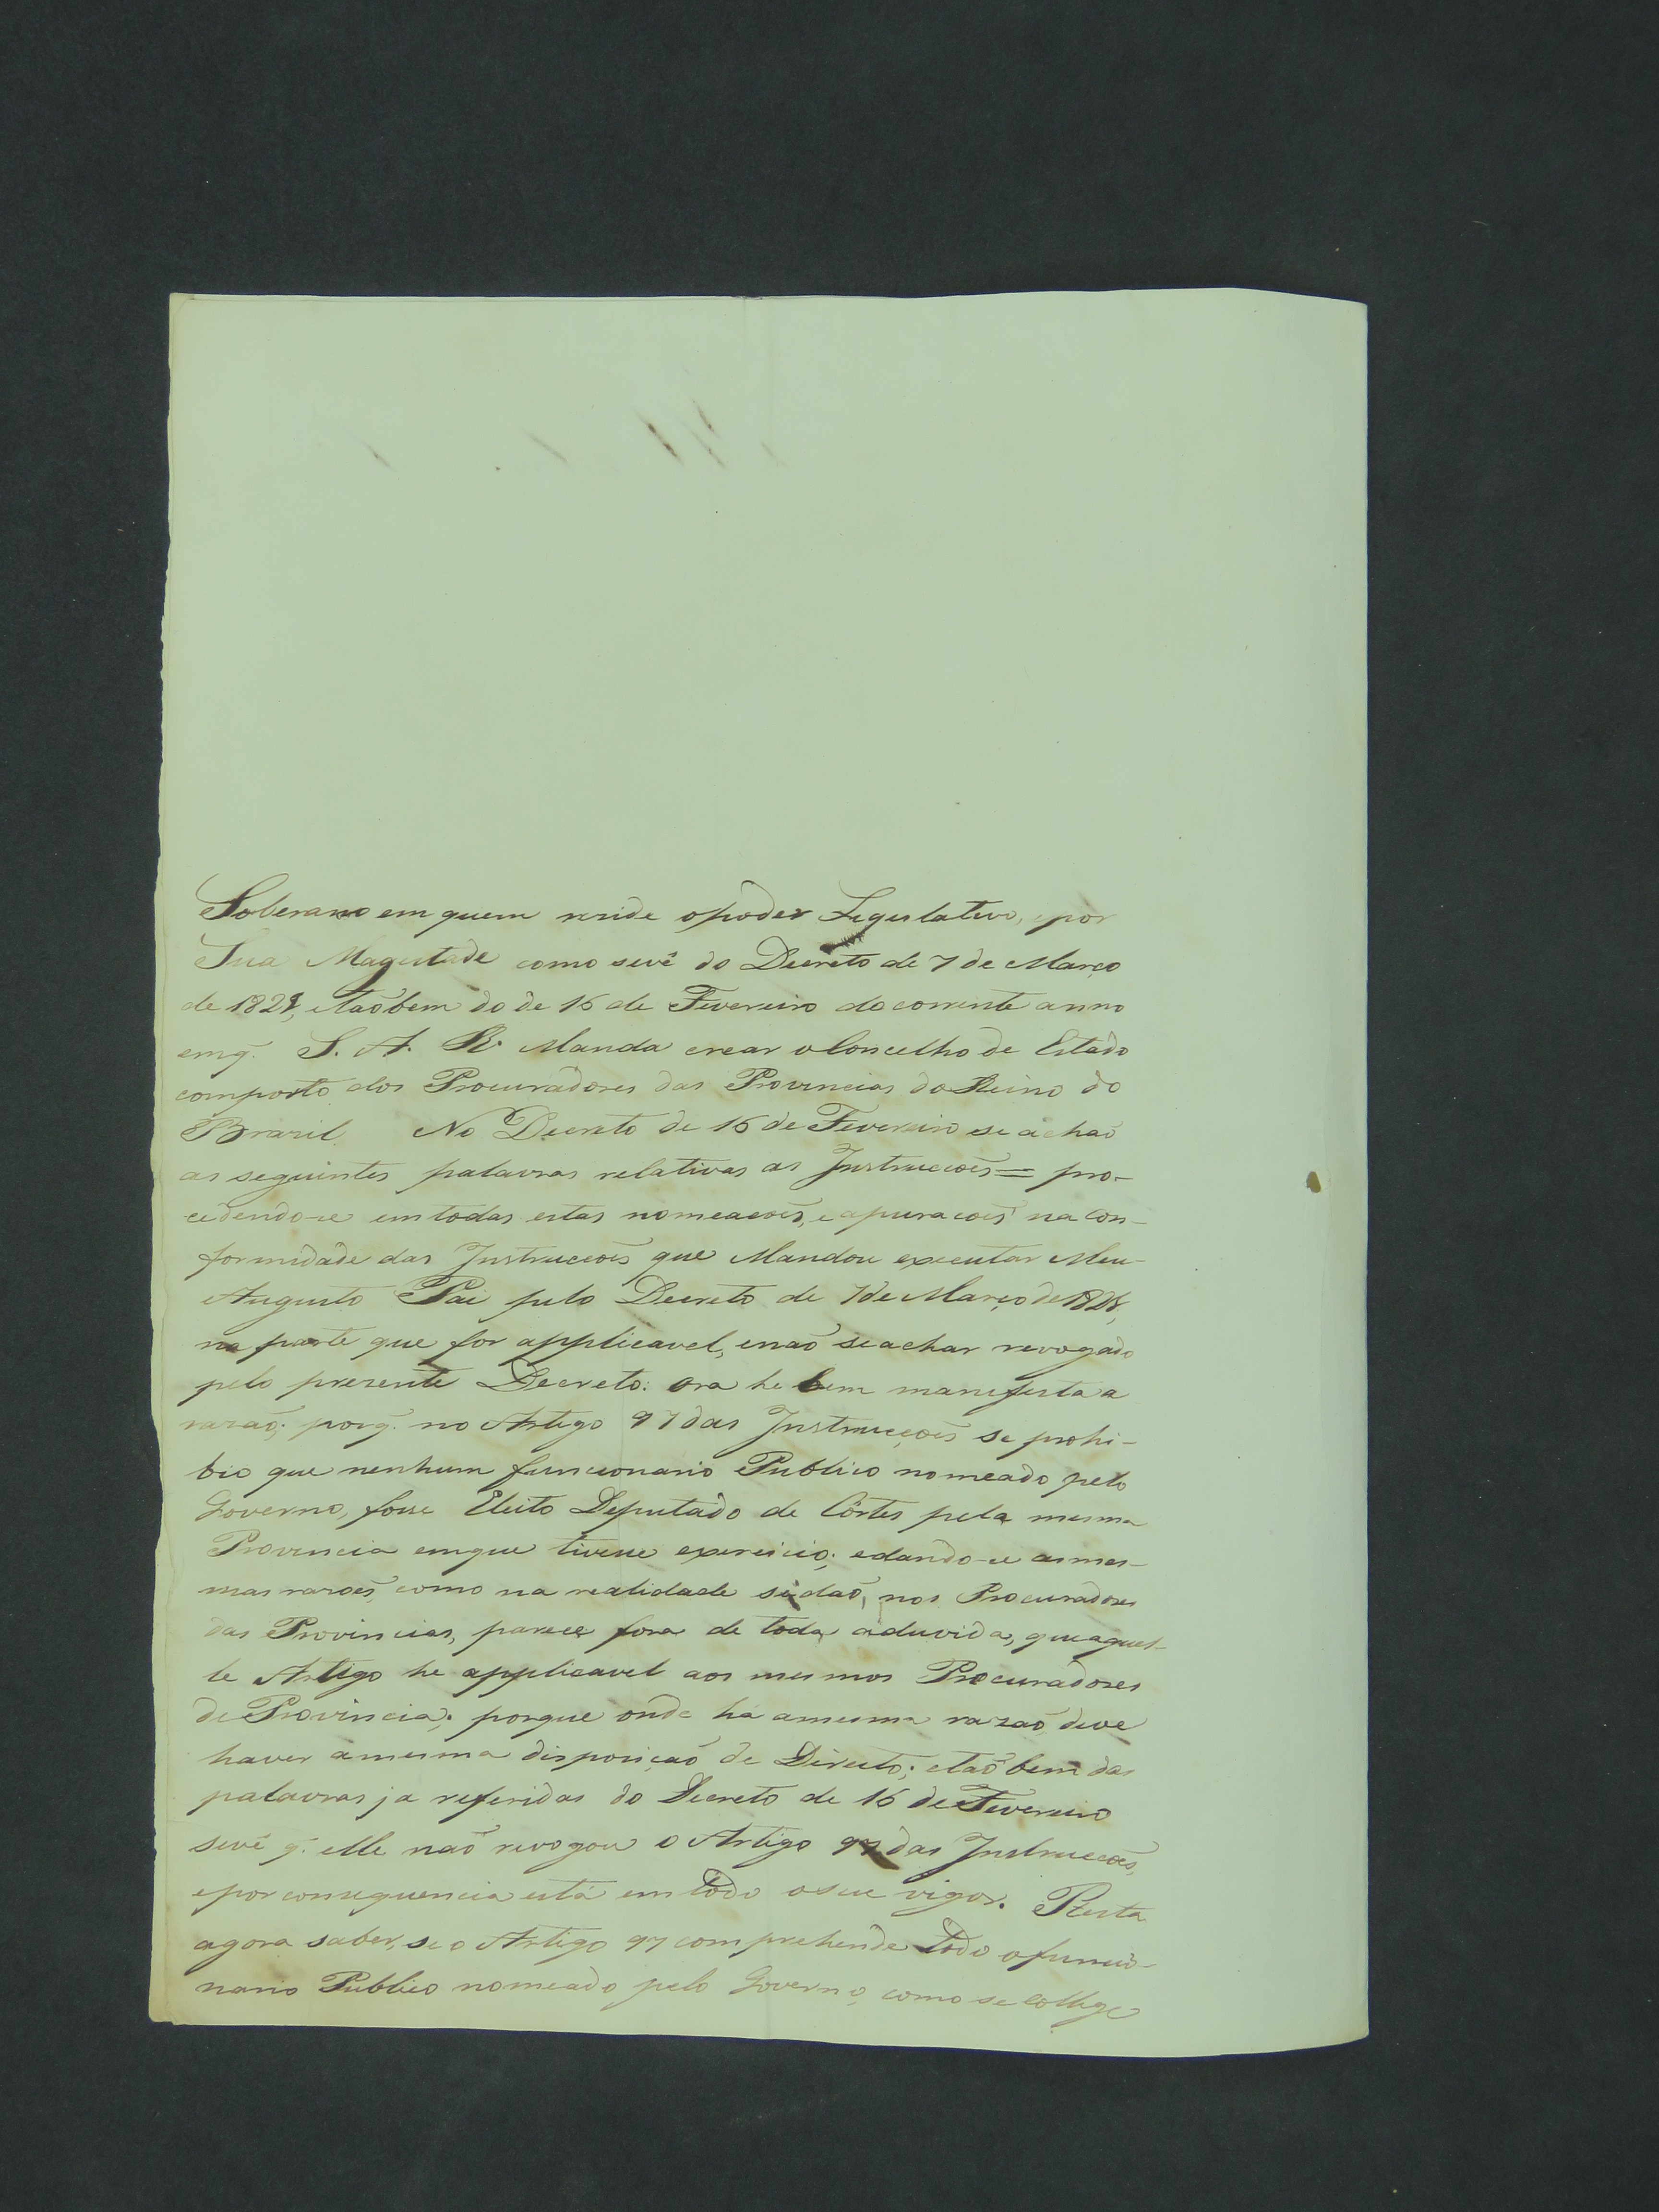 Soberano em quem reside o poder Legislativo, e por
Sua Magestade como se vê do Decreto de 7 de Março
de 1821, e taõbem do de 16 de Fevereiro do corrente anno
em q. S. A. R. Manda crear o Concelho de Estado
composto dos Procuradores das Provincias do Reino do
Brazil. No Decreto de 16 de Fevereiro se achaõ
as seguintes palavras relativas as Instrucçoẽs = pro-
cedendo-se em todas estas nomeaçoẽs, e apuraçoẽs na con-
formidade das Instrucçoẽs que Mandou executar Meu
Augusto Pai pelo Decreto de 7 de Março de 1821,
na parte que for applicavel, e naõ se achar revogado
pelo prezente Decreto: Ora he bem manifesta a
razaõ; porq. no Artigo 97 das Instrucçoẽs se prohi-
bio que nenhum funcionario Publico nomeado pelo
Governo, fosse Eleito Deputado de Côrtes pela mesma
Provincia em que tivesse exercicio; e dando-se as mes-
mas razoẽs, como na realidade se daõ, nos Procuradores
das Provincias, parece fora de toda a duvida, que aquel-
le Artigo he applicavel aos mesmos Procuradores
de Provincia; porque onde há a mesma razaõ deve
haver a mesma disposiçaõ de Direito; e taõ bem das
palavras ja referidas do Decreto de 16 de Fevereiro
se vê q. elle naõ revogou o Artigo 97 das Instrucçoẽs,
e por consequencia está em todo o seu vigor. Resta
agora saber, se o Artigo 97 comprehende todo o funcio-
nario Publico nomeado pelo Governo, como se collige